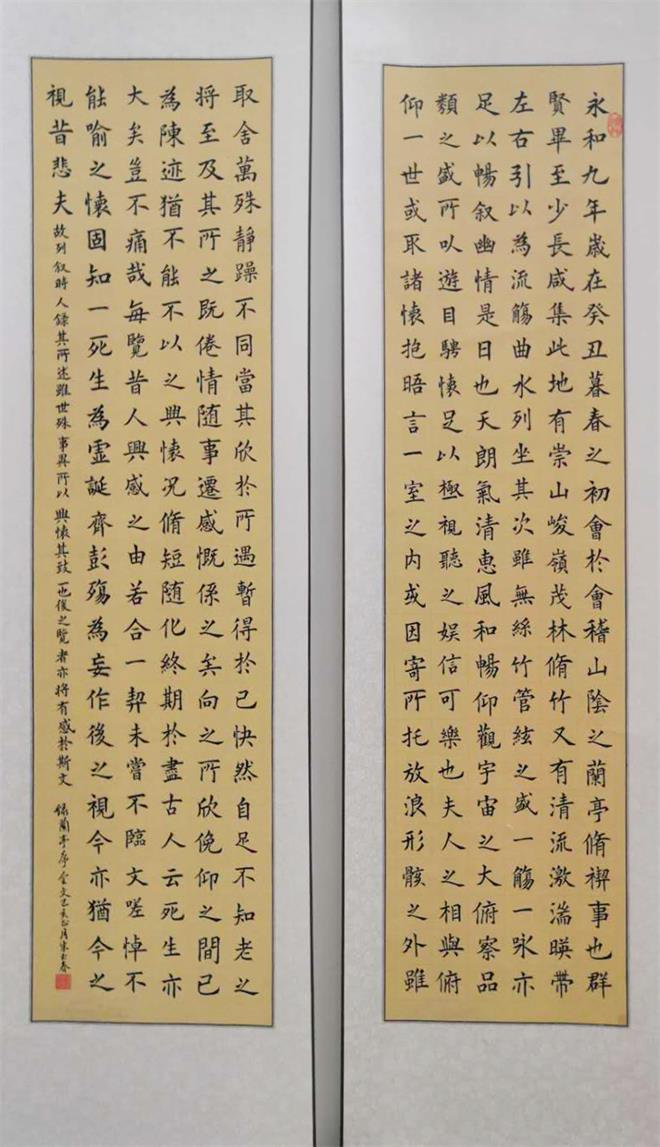 永和九年歲在癸丑暮春之初會於會稽山陰之蘭亭脩禊事也群
賢畢至少長咸集此地有崇山峻嶺茂林脩竹又有清流激湍暎帶
左右引以為流觴曲水列坐其次雖無絲竹管絃之盛一觴一咏亦
足以暢叙幽情是日也天朗氣清惠風和暢仰觀宇宙之大俯察品
類之盛所以遊目騁懷足以極視聽之娱信可樂也夫人之相與俯
仰一世或取諸懷抱晤言一室之内或因寄所托放浪形骸之外雖
取舍萬殊靜躁不同當其欣於所遇暫得於己快然自足不知老之
将至及其所之既倦情随事遷感慨係之矣向之所欣俛仰之間已
為陳迹猶不能不以之興懷况脩短随化終期於盡古人云死生亦
大矣豈不痛哉每覽昔人興感之由若合一契未嘗不臨文嗟悼不
能喻之懷固知一死生為虚誕齊彭殤為妄作後之視今亦猶今之
視昔悲夫故列叙時人錄其所述雖世殊事異所以興懷其致一也後之覽者亦将有感於斯文 錄蘭亭序全文己亥正月